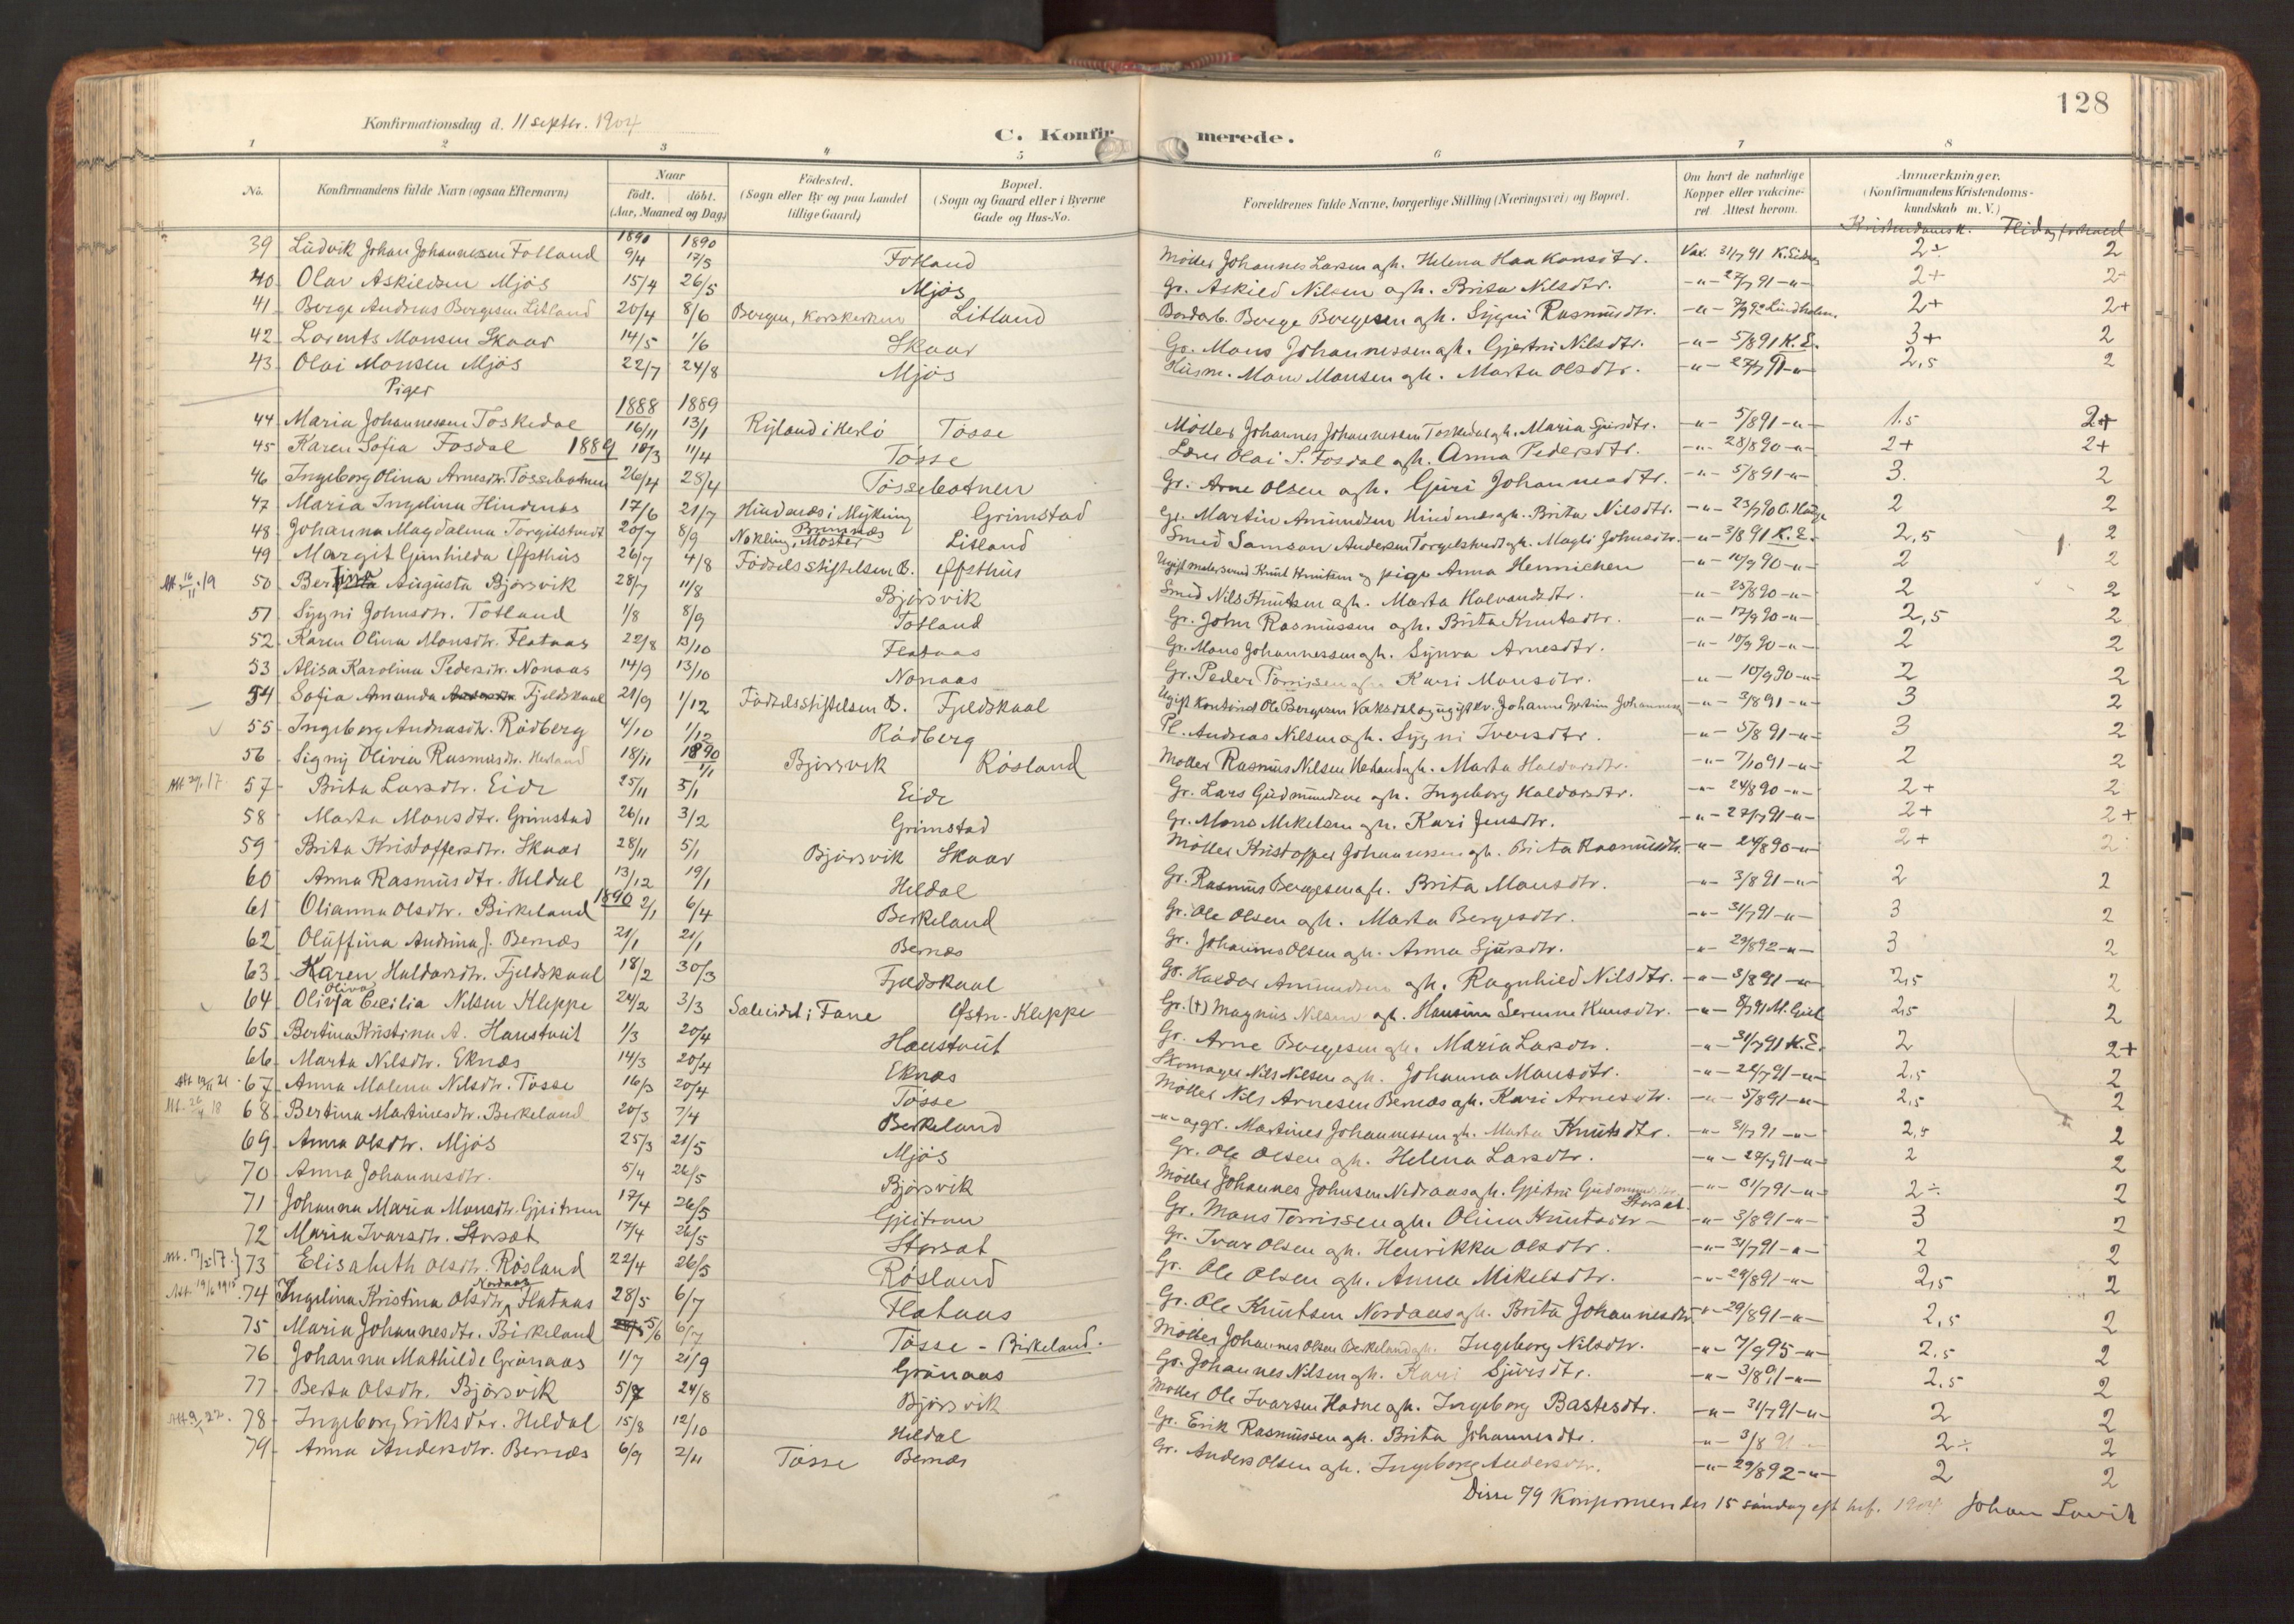 128
Konfirmationsdag d. 11 septbr. 1904
C. Konfirmerede.
1 2 3 4 5 6 7 8
No. Konfirmandens fulde Navn (ogsaa Efternavn) Naar födt. döbt. (Aar, Maaned og Dag) Födested. (Sogn eller By og paa Landet tillige Gaard) Bopæl. (Sogn og Gaard eller i Byerne Gade og Hus-No. Forældrenes fulde Navne, borgerlige Stilling (Næringsvei) og Bopæl. Om havt de naturlige Kopper eller vakcineret. Attest herom. Anmærkninger. (Konfirmandens Kristendomskundskab m. V.)
Kristendomsk. Flid og forhold
1890 1890
39 Ludvik Johan Johannesen Totland 9/4 17/5 Totland Möller Johannes Larsen agh. Helena Haakonsdtr. Vax. 31/7 91 2÷ 2
40 Olav Askildsen Mjös 15/4 26/5 Mjös Gr. Askild Nilsen agh. Brita Nilsdtr. -"- 27/7 91 -"- 2+ 2
41 Berge Andreas Bergesen Litland 20/4 8/6 Bergen, Korskirken Litland Bordarb. Berge Bergesen agh. Sygni Rasmusdtr. -"- Lindholm. 2+ 2+
42 Lorents Monsen Skaar 14/5 1/6 Skaar Gr. Mons Johannessen agh. Gjertrü Nilsdtr. -"- 5/8 91 K.E. 3+ 2
43 Olai Monsen Mjös 22/7 24/8 Mjös Husm. Mons Monsen agh. Marta Olsdtr. -"- 27/7 91 -"- 2,5 2
Piger
1888 1889
44 Maria Johannessen Toskedal 16/11 13/1 Ryland i Herlö Tösse Möller Johannes Johannessen Toskedal agh. Maria Sjursdtr. -"- 5/8 91 -"- 1.5 2+
45 Karen Sofia Fosdal 1889 10/3 11/4 Tösse Lærer Olai S. Fosdal agh. Anna Pedersdtr. -"- 28/8 90 -"- 2+ 2+
46 Ingeborg Olina Arnesdtr. Tössebotnen 26/4 28/4 Tössebotnen Gr. Arne Olsen agh. Guri Johannesdtr. -"- 5/8 91 -"- 3. 2
47 Maria Ingelina Hindenes 17/6 21/7 Hindenæs i Mykling Grimstad Gr. Martin Amundsen Hindenes agh. Brita Nilsdtr. -"- 23/7 90 2 2
48 Johanna Magdalena Torgilstveit 20/7 8/9 Nökling, Bremnæs Moster Litland Smed Samson Andersen Torgilstveit agh. Magli Johnsdtr. -"- 3/8 91 K.E. 2,5 2
49 Margit Gunhilda Øfsthüs 26/7 4/8 Födselsstiftelsen B. Øfsthüs Ugift malersvend Knut Knutsen og pige Anna Henrichsen -"- 10/9 90 -"- 2 2
Att. 16/11 19 50 Bertina Augusta Björsvik 28/7 11/8 Björsvik Smed Nils Knütsen agh. Marta Halvardsdtr. -"- 25/8 90 -"- 2 2
51 Sygni Johnsdtr. Totland 1/8 8/9 Totland Gr. John Rasmussen agh. Brita Knutsdtr. -"- 17/9 90 -"- 2,5 2
52 Karen Olina Monsdtr. Flataas 22/8 13/10 Flataas Gr. Mons Johannessen agh. Synva Arnesdtr. -"- 10/9 90 -"- 2 2
53 Alisa Karolina Pedersdtr. Nonaas 14/9 13/10 Nonaas Gr. Peder Torrissen agh. Kari Monsdtr. -"- 10/9 90 -"- 2 2
54 Sofia Amanda Fjeldskaal 21/9 1/12 Födselsstiftelsen B. Fjeldskaal Ugift Ole Bergesen Vaksdal og ugift kv. Johanne -"- 3/8 91 -"- 3 2
55 Ingeborg Andreasdtr. Rödberg 4/10 1/12 Rödberg Pl. Andreas Nilsen agh. Sygni Iversdtr. -"- 5/8 91 -"- 3 2
56 Signy Olivia Rasmusdtr. 18/11 1890 1/1 Björsvik Rösland Möller Rasmus Nilsen agh. Marta Haldorsdtr. -"- 7/10 91 -"- 2 2
57 Brita Larsdtr. Eide 25/11 5/1 Eide Gr. Lars Gudmundsen agh. Ingeborg Haldorsdtr. -"- 24/8 90 -"- 2+ 2
58 Marta Monsdtr. Grimstad 26/11 3/2 Grimstad Gr. Mons Mikelsen agh. Kari Jensdtr. -"- 27/7 91 -"- 2+ 2+
59 Brita Kristoffersdtr. Skaar 28/11 5/1 Björsvik Skaar Möller Kristoffer Johannessen agh. Brita Rasmusdtr. -"- 24/8 90 -"- 2+ 2
60 Anna Rasmusdtr. Heldal 13/12 19/1 Heldal Gr. Rasmus Bergesen agh. Brita Monsdtr. -"- 3/8 91 -"- 2 2
61 Olianna Olsdtr. Birkeland 1890 2/1 6/4 Berkeland Gr. Ole Olsen agh. Marta Bergesdtr. -"- 31/7 91 -"- 3 2
62 Oluffina Andrina J. Bernæs 21/1 21/1 Bernæs Gr. Johannes Olsen agh. Anna Sjursdtr. -"- 29/8 92 -"- 3 2
63 Karen Haldorsdtr. Fjeldskaal 18/2 30/3 Fjeldskaal Gr. Haldor Amundsen agh. Ragnhild Nilsdtr. -"- 3/8 91 -"- 2,5 2
64 Olivia Oliva Cecilia Nilsen Kleppe 24/2 3/3 Sæleidet i Fane Østre-Kleppe Gr. (†) Magnus Nilsen agh. Hansine Serenne Hansdtr. -"- 2,5 2
65 Bertina Kristina A. Hanstveit 1/3 20/4 Hanstveit Gr. Arne Bergesen agh. Maria Larsdtr. -"- 31/7 91 K.E. 2 2+
66 Marta Nilsdtr. Eknæs 14/3 20/4 Eknæs Skomager Nils Nilsen agh. Johanna Monsdtr. -"- 22/7 91 -"- 2,5 2
67 Anna Malena Nilsdtr. Tösse 16/3 20/4 Tösse Möller Nils Arnesen Bernæs agh. Kari Arnesdtr. -"- 5/8 91 -"- 2,5 2
68 Bertina Martinesdtr. Berkeland 20/3 7/4 Berkeland -"- og gr. Martines Johannessen agh. Marta Knutsdtr. -"- 31/7 91 -"- 2,5 2
69 Anna Olsdtr. Mjös 25/3 21/5 Mjös Gr. Ole Olsen agh. Helena Larsdtr. -"- 27/7 91 -"- 2 2
70 Anna Johannesdtr. 5/4 26/5 Björsvik Möller Johannes Johnsen Nedraas agh. Gjertrü -"- 31/7 91 -"- 2÷ 2
71 Johanna Maria Monsdtr. Gjeitrem 17/4 26/5 Gjeitram Gr. Mons Torrissen agh. Olina Knutsdtr Storset. -"- 3/8 91 -"- 3 2
72 Maria Ivarsdtr. Storset 17/4 26/5 Storset Gr. Ivar Olsen agh. Henrikka Olsdtr. -"- 31/7 91 -"- 2 2
73 Elisabeth Olsdtr. Rösland 22/4 26/5 Rösland Gr. Ole Olsen agh. Anna Mikelsdtr. -"- 29/8 91 -"- 2,5 2
74 Ingelina Kristina Olsdtr. Nordaas Flataas 28/5 6/7 Flataas Gr. Ole Knutsen Nordaas agh. Brita Johannesdtr. -"- 29/8 91 -"- 2,5 2
75 Maria Johannesdtr. Birkeland 5/6 6/7 Tösse - Birkeland. Möller Johannes Olsen Berkeland agh. Ingeborg Nilsdtr. -"- 7/9 95 -"- 2,5 2
76 Johanna Mathilde Grönaas 1/7 21/9 Grönaas Gr. Johannes Nilsen agh. Kari Sjursdtr. -"- 3/8 91 -"- 2,5 2
77 Berta Olsdtr. Björsvik 5/7 24/8 Björsvik Möller Ole Ivarsen Hodne agh. Ingeborg Bastesdtr. -"- 31/7 91 -"- 2 2
78 Ingeborg Eriksdtr. Heldal 15/8 12/10 Heldal Gr. Erik Rasmussen agh. Brita Johannesdtr. -"- 3/8 91 2÷ 2
79 Anna Andersdtr. Bernæs 6/9 2/11 Tösse Bernæs Gr. Anders Olsen agh. Ingeborg Andersdtr. -"- 29/8 92 -"- 2 2
Disse 79 15 söndag eft. 1904 Johan Lavik